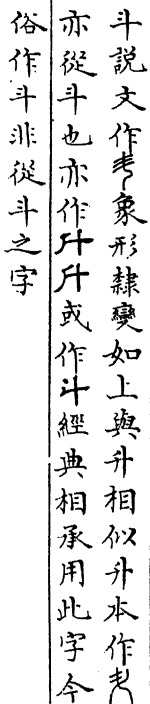 斗說文作象形隸變如上與升相似升本作
亦從斗也亦作或作斗經典相承用此字今
俗作斗非從斗之字